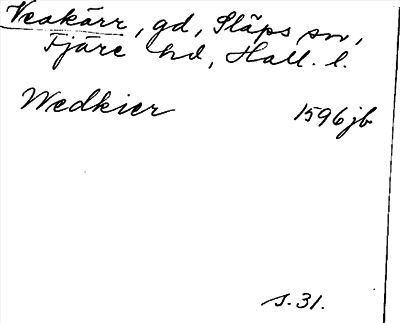 Veakärr, gd, Släps sn,
Fjäre hd, Hall. l.
Wedkier 1596 jb
s. 31.